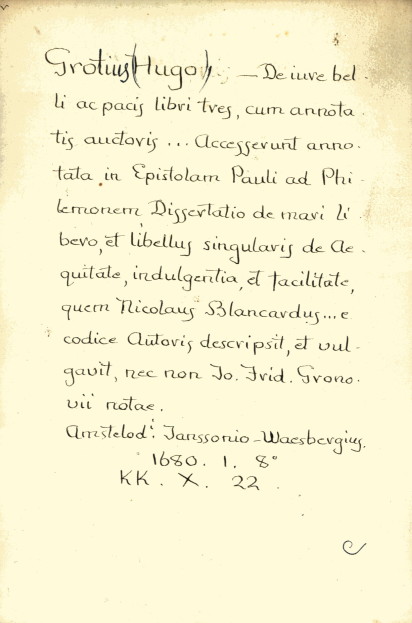 Grotius (Hugo), — De iure bel-
li ac pacis libri tres, cum annota-
tis auctoris ... Accesserunt anno-
tata in Epistolam Pauli ad Phi-
lemonem Dissertatio de mari li-
bero, et libellus singularis de Ae-
quitate, indulgentia, et facilitate,
quem Nicolaus Blancardus ... e
codice Autoris descripsit, et vul-
gavit, nec non Jo. Frid. Grono-
vii notae.
Amstelodi: Janssonio-Waesbergius.
1680. 1. 8°
KK. X. 22